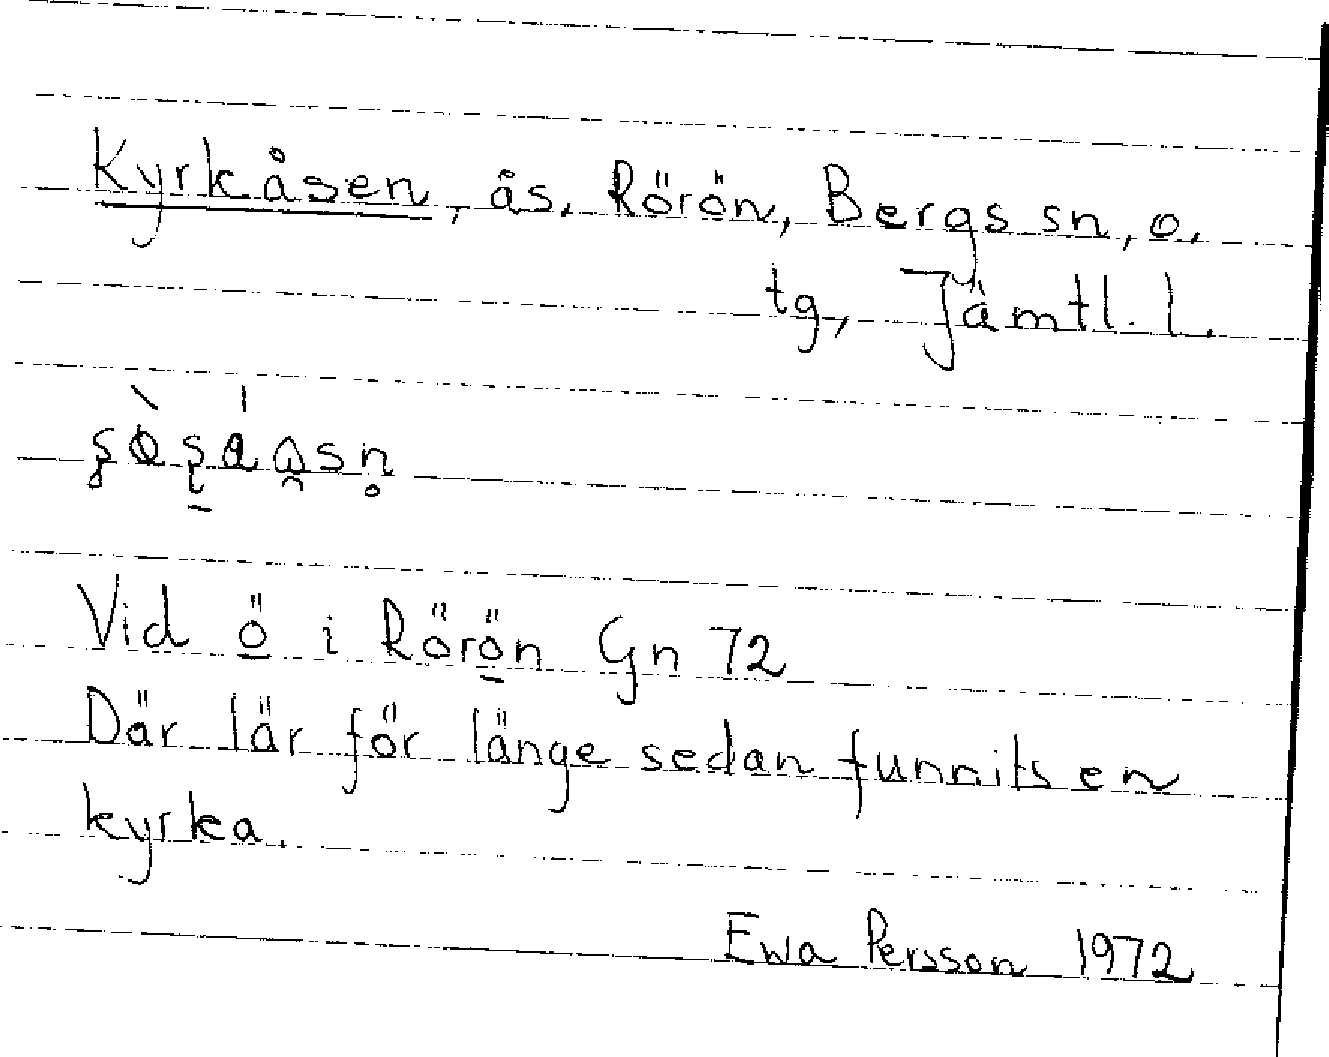 Kyrkåsen, ås, Rörön, Bergs sn, o.
tg, Jämtl. l.
Vid ö i Rörön Gn 72
Där lär för länge sedan funnits en
kyrka.
Ewa Persson 1972